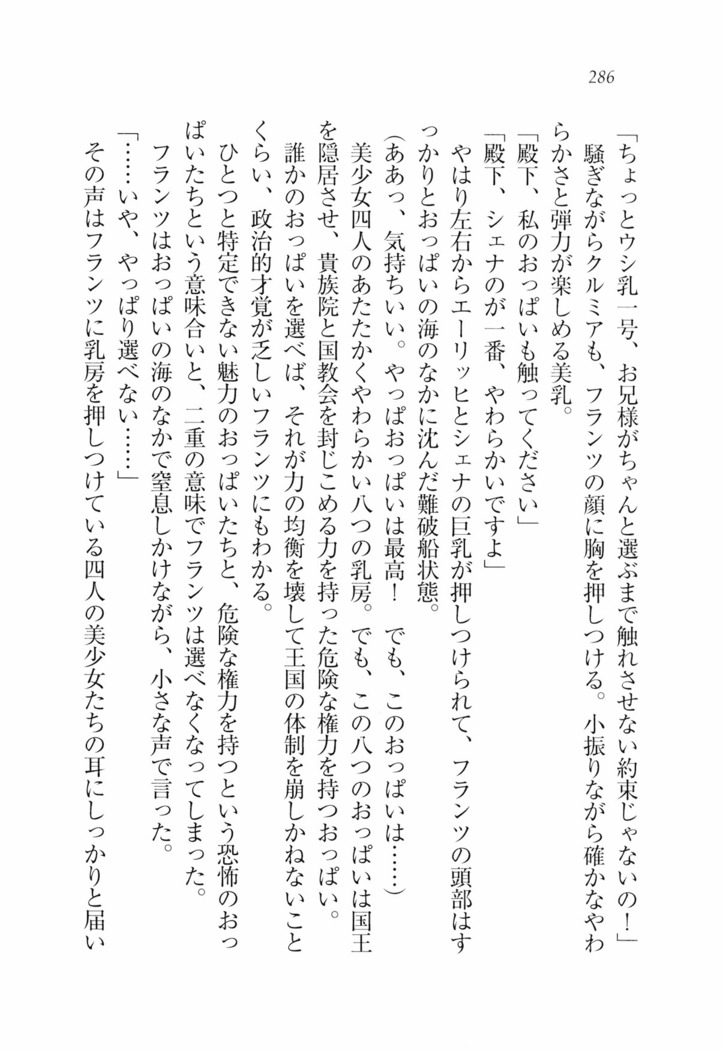 286
「ちょっとウシ乳一号、お兄様がちゃんと選ぶまで触れさせない約束じゃないの！」
騒ぎながらクルミアも、フランツの顔に胸を押しつける。小振りながら確かなやわ
らかさと弾力が楽しめる美乳。
「殿下、私のおっぱいも触ってください」
「殿下、シェナのが一番、やわらかいですよ」
やはり左右からエーリッヒとシェナの巨乳が押しつけられて、フランツの頭部はす
っかりとおっぱいの海のなかに沈んだ難破船状態。
（ああっ、気持ちいい。やっぱおっぱいは最高！　でも、このおっぱいは……）
美少女四人のあたたかくやわらかい八つの乳房。でも、この八つのおっぱいは国王
を隠居させ、貴族院と国教会を封じこめる力を持った危険な権力を持つおっぱい。
誰かのおっぱいを選べば、それが力の均衡を壊して王国の体制を崩しかねないこと
くらい、政治的才覚が乏しいフランツにもわかる。
ひとつと特定できない魅力のおっぱいたちと、危険な権力を持つという恐怖のおっ
ぱいたちという意味合いと、二重の意味でフランツは選べなくなってしまった。
フランツはおっぱいの海のなかで窒息しかけながら、小さな声で言った。
「……いや、やっぱり選べない……」
その声はフランツに乳房を押しつけている四人の美少女たちの耳にしっかりと届い